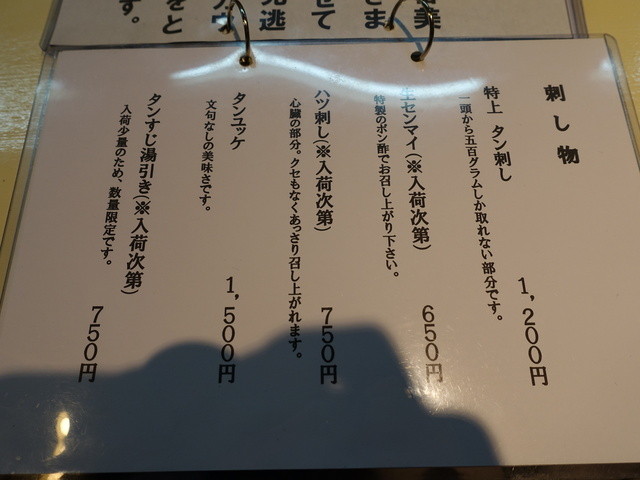 刺し物
特上 タン刺し
一頭から五百グラムしか取れない部分です。
1,200円
生センマイ(※入荷次第)
特製のポン酢でお召し上がり下さい。
650円
ハツ刺し(※入荷次第)
心臓の部分。クセもなくあっさり召し上がれます。
750円
タンユッケ
文句なしの美味さです。
1,500円
タンすじ湯引き(※入荷次第)
入荷少量のため、数量限定です。
750円